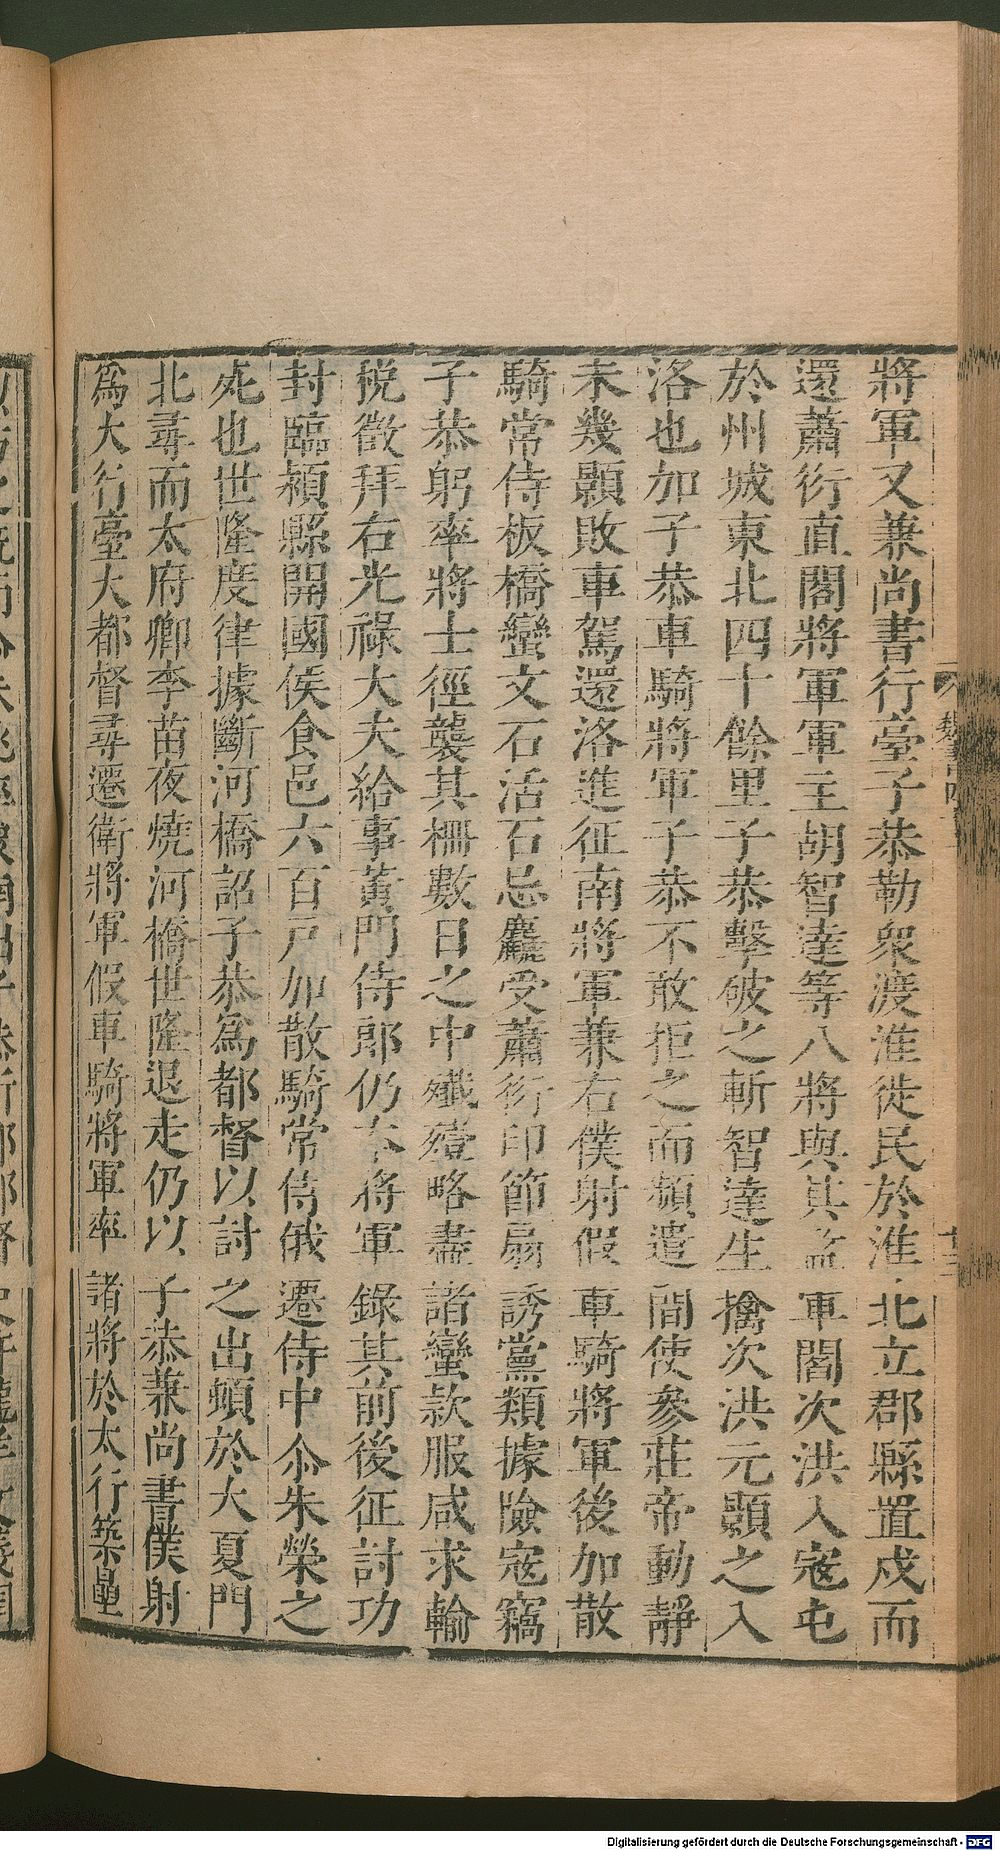 將軍又兼尚書行臺子恭勒衆渡淮徙民於淮北立郡縣置戍而
還蕭衍直閣將軍軍主胡智達等八將與其監軍閻次洪入寇屯
於州城東北四十餘里子恭擊破之斬智達生擒次洪元顥之入
洛也加子恭車騎將軍子恭不敢拒之而頻遣間使參莊帝動靜
未幾顥敗車駕還洛進征南將軍兼右僕射假車騎將軍後加散
騎常侍板橋蠻文石活石忌麤受蕭衍印節扇誘黨類據險寇竊
子恭躬率將士徑襲其柵數日之中殲殪略盡諸蠻款服咸求輸
稅徵拜右光祿大夫給事黃門侍郎仍本將軍錄其前後征討功
封臨潁縣開國侯食邑六百戸加散騎常侍俄遷侍中尒朱榮之
死也世隆度律據斷河橋詔子恭爲都督以討之出頓於大夏門
北尋而太府卿李苗夜燒河橋世隆退走仍以子恭兼尚書僕射
爲大行臺大都督尋遷衛將軍假車騎將軍率諸將於太行築壘
Digitalisierung gefördert durch die Deutsche Forschungsgemeinschaft - DFG